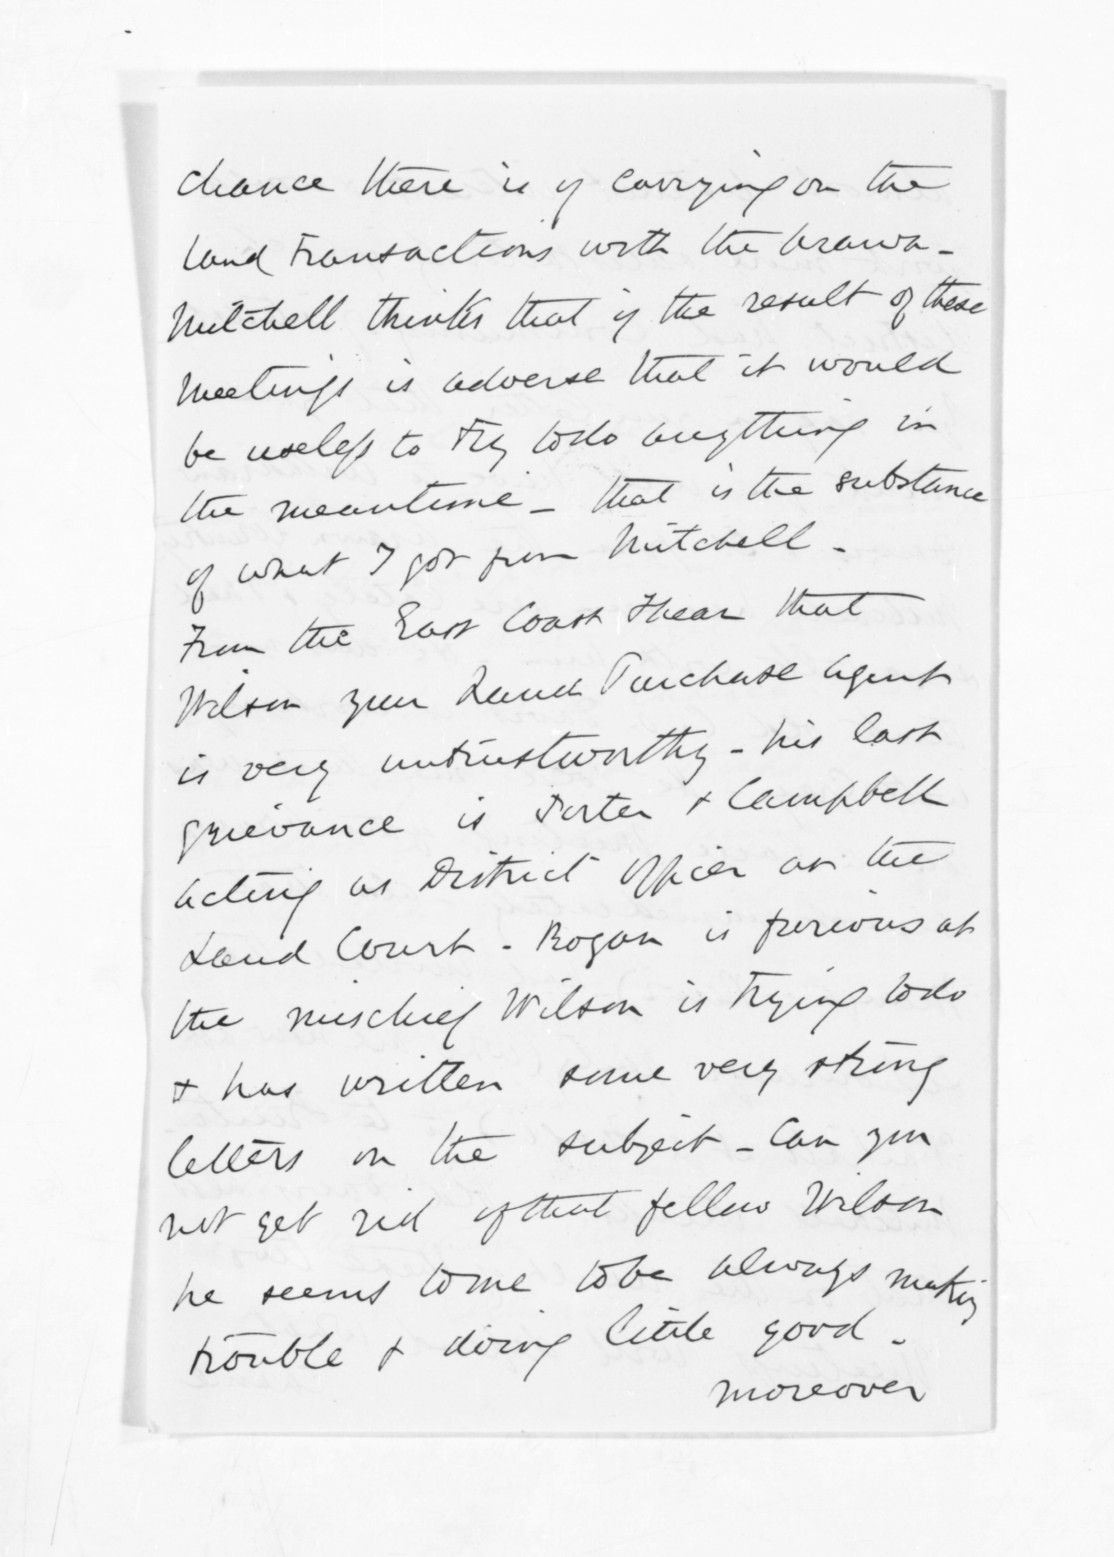 chance there is of carrying on the
land transactions with the Arawa -
Mitchell thinks that if the result of these
meetings is adverse that it would
be useless to try to do anything in
the meantime - that is the substance
of what I got from Mitchell -
From the East Coast I hear that
Wilson your Land Purchase Agent
is very untrustworthy - his last
grievance is Porter & Campbell
acting as District Officer at the
Land Court - Rogan is furious at
the mischief Wilson is trying to do
& has written some very strong
letters on the subject - Can you
not get rid of that fellow Wilson
he seems to me to be always making
trouble & doing little good -
moreover